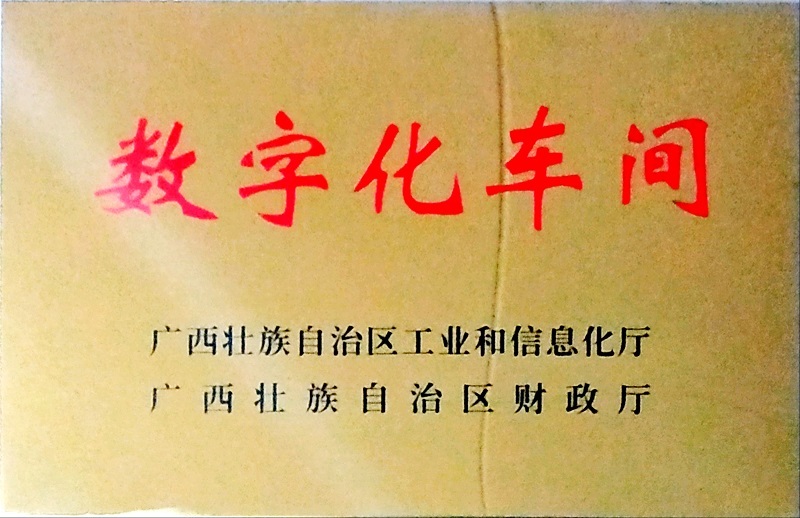 数字化车间
广西壮族自治区工业和信息化厅
广西壮族自治区财政厅